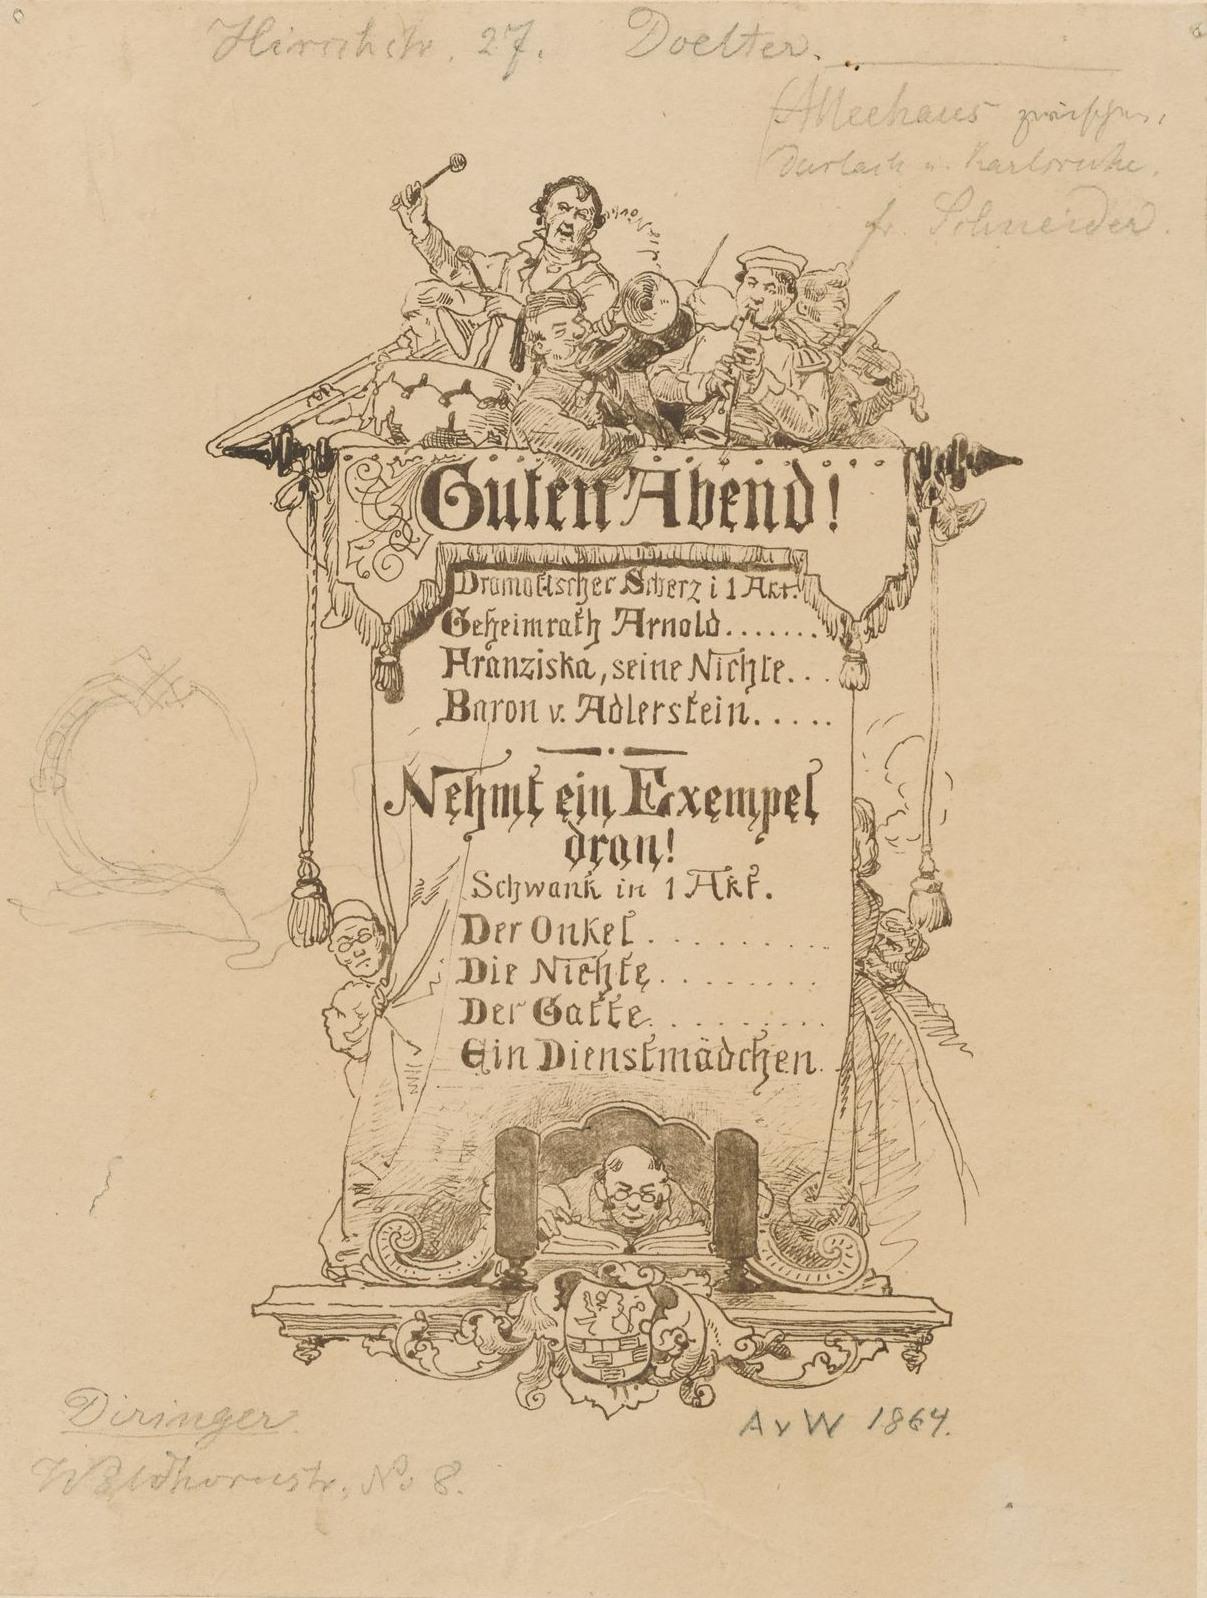 Hirschstr. 27. Doelter.
(Alleehaus zwischen
Durlach u. Karlsruhe.
fr. Schneider.
Guten Abend!
Dramatischer Scherz i 1 Akt.
Geheimrath Arnold.......
Franziska, seine Nichte...
Baron v. Adlerstein.....
Nehmt ein Exempel
dran!
Schwank in 1 Akt.
Der Onkel..........
Die Nichte.........
Der Gatte..........
Ein Dienstmädchen..
AvW 1864.
Diringer.
Waldhornstr. No 8.